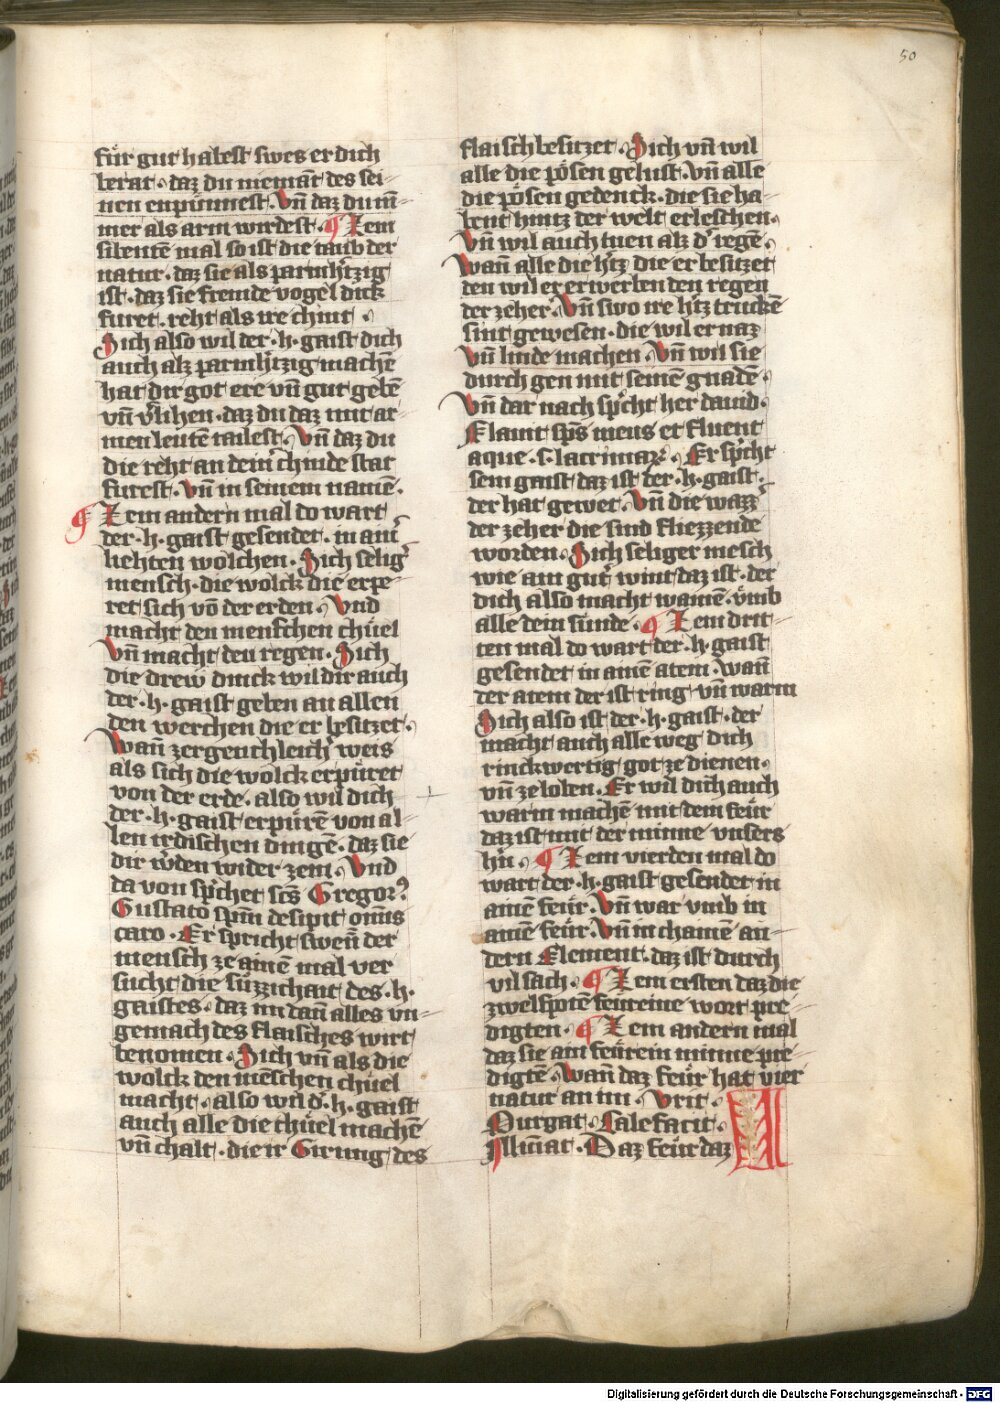 50
für gut habest swes er dich
berat · daz du nieman̄t des sei-
nen enpünnest · Vn̄ daz du im̄-
mer als arm wirdest · ¶ Zem
sibentē mal so ist die taub der
natur · daz sie als parmh̓tzig
ist · daz sie fremde vogel dick
furet · reht als ire chint ·
Sich also wil der · h · gaist dich
auch alz parmh̓tzig machē
hat dir got ere vn̄ gut gebē
vn̄ v̓lihen · daz du daz mit ar
men leutē tailest · Vn̄ daz du
die reht an dein̓ chinde stat
furest · Vn̄ in seinem namē ·
¶ Zem andern mal do wart
der · h · gaist gesendet · in ain̓
liehten wolchen · Sich selig̓
mensch · die wolck die erpe-
ret sich vō der erden · Vnd
macht den menschen chüel
Vn̄ macht den regen · Sich
die drew dinck wil dir auch
der · h · gaist geben an allen
den werchen die er besitzet ·
Wan̄ zergenchleich̓ weis
als sich die wolck erpüret
von der erde · also wil dich
der · h · gaist erpürē von al-
len irdischen dingē · daz sie
dir w̓den wider zem · Vnd
da von sp̓chet sc̄s Gregor⁹
Gustato spū desipit om̄is
caro · Er spricht swen̄ der
mensch ze ainē mal ver
sucht die süzzichait des · h ·
gaistes · daz im dan̄ alles vn-
gemach des flaisches wirt
benomen · Sich vn̄ als die
wolck den mēschen chüel
macht · also wil d̓ · h · gaist
auch alle die chüel machē
vn̄ chalt · die ir Girung des
flaisch besitzet · Sich vn̄ wil
alle die pösen gelust · Vn̄ alle
die pösen gedenck · die sie ha-
bent hintz der welt erleschen ·
Vn̄ wil auch tuen alz d̓ regē ·
Wan̄ alle die h̓tz die er besitzet
den wil er erwerben den regen
der zeher · Vn̄ swo ire h̓tz trucken
sint gewesen · die wil er naz
vn̄ linde machen · Vn̄ wil sie
durch gen mit seinē gnadē ·
Vn̄ dar nach sp̓cht her dauid ·
Flauit sp̄s meus et fluent
aque · s · lacrimaꝝ · Er sp̓cht
sein gaist daz ist der · h · gaist ·
der hat gewet · Vn̄ die wazz̓
der zeher die sind fliezzende
worden · Sich seliger mēsch
wie ain gut̓ wint daz ist · der
dich also macht wainē · vmb
alle dein sünde · ¶ Zem drit-
ten mal do wart der · h · gaist
gesendet in ainē atem · Wan̄
der atem der ist ring vn̄ warm
Sich also ist der · h · gaist · der
macht auch alle weg dich
rinckwertig got ze dienen ·
vn̄ ze loben · Er wil dich auch
warm machē mit dem feür
daz ist mit der minne vnsers
h̓ñ · ¶ Zem vierden mal do
wart der · h · gaist gesendet in
ainē feür · Vn̄ war vmb in
ainē feür · Vn̄ in chainē an-
dern Element · daz ist durch
vil sach · ¶ Zem ersten daz die
zwelfpotē feüreine wort pre-
digten · ¶ Zem andern mal
daz sie ain feürein minne pre-
digtē · Wan̄ daz feür hat vier
natur an im · Vrit ·
Purgat · Calefacit ·
Illūiat · Daz feür daz